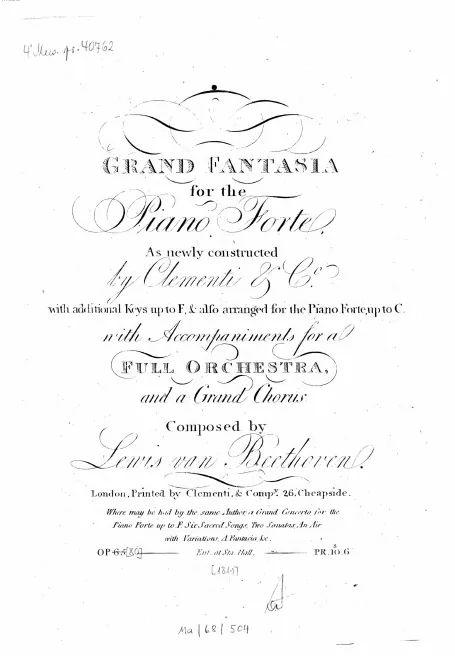 4° Mus. pr. 40762
GRAND FANTASIA
for the
Piano Forte,
As newly constructed
by Clementi & Co.
with additional Keys up to F, & also arranged for the Piano Forte, up to C.
with Accompaniments for a
FULL ORCHESTRA,
and a Grand Chorus
Composed by
Lewis van Beethoven.
London, Printed by Clementi, & Compy. 26, Cheapside.
Where may be had by the same Author, a Grand Concerto for the
Piano Forte up to F. Six Sacred Songs, Two Sonatas, An Air
with Variations, A Fantasia &c.
OP 65 [80] Ent. at Sta. Hall. PR. 10. 6
[1811]
Ma | 68 | 504